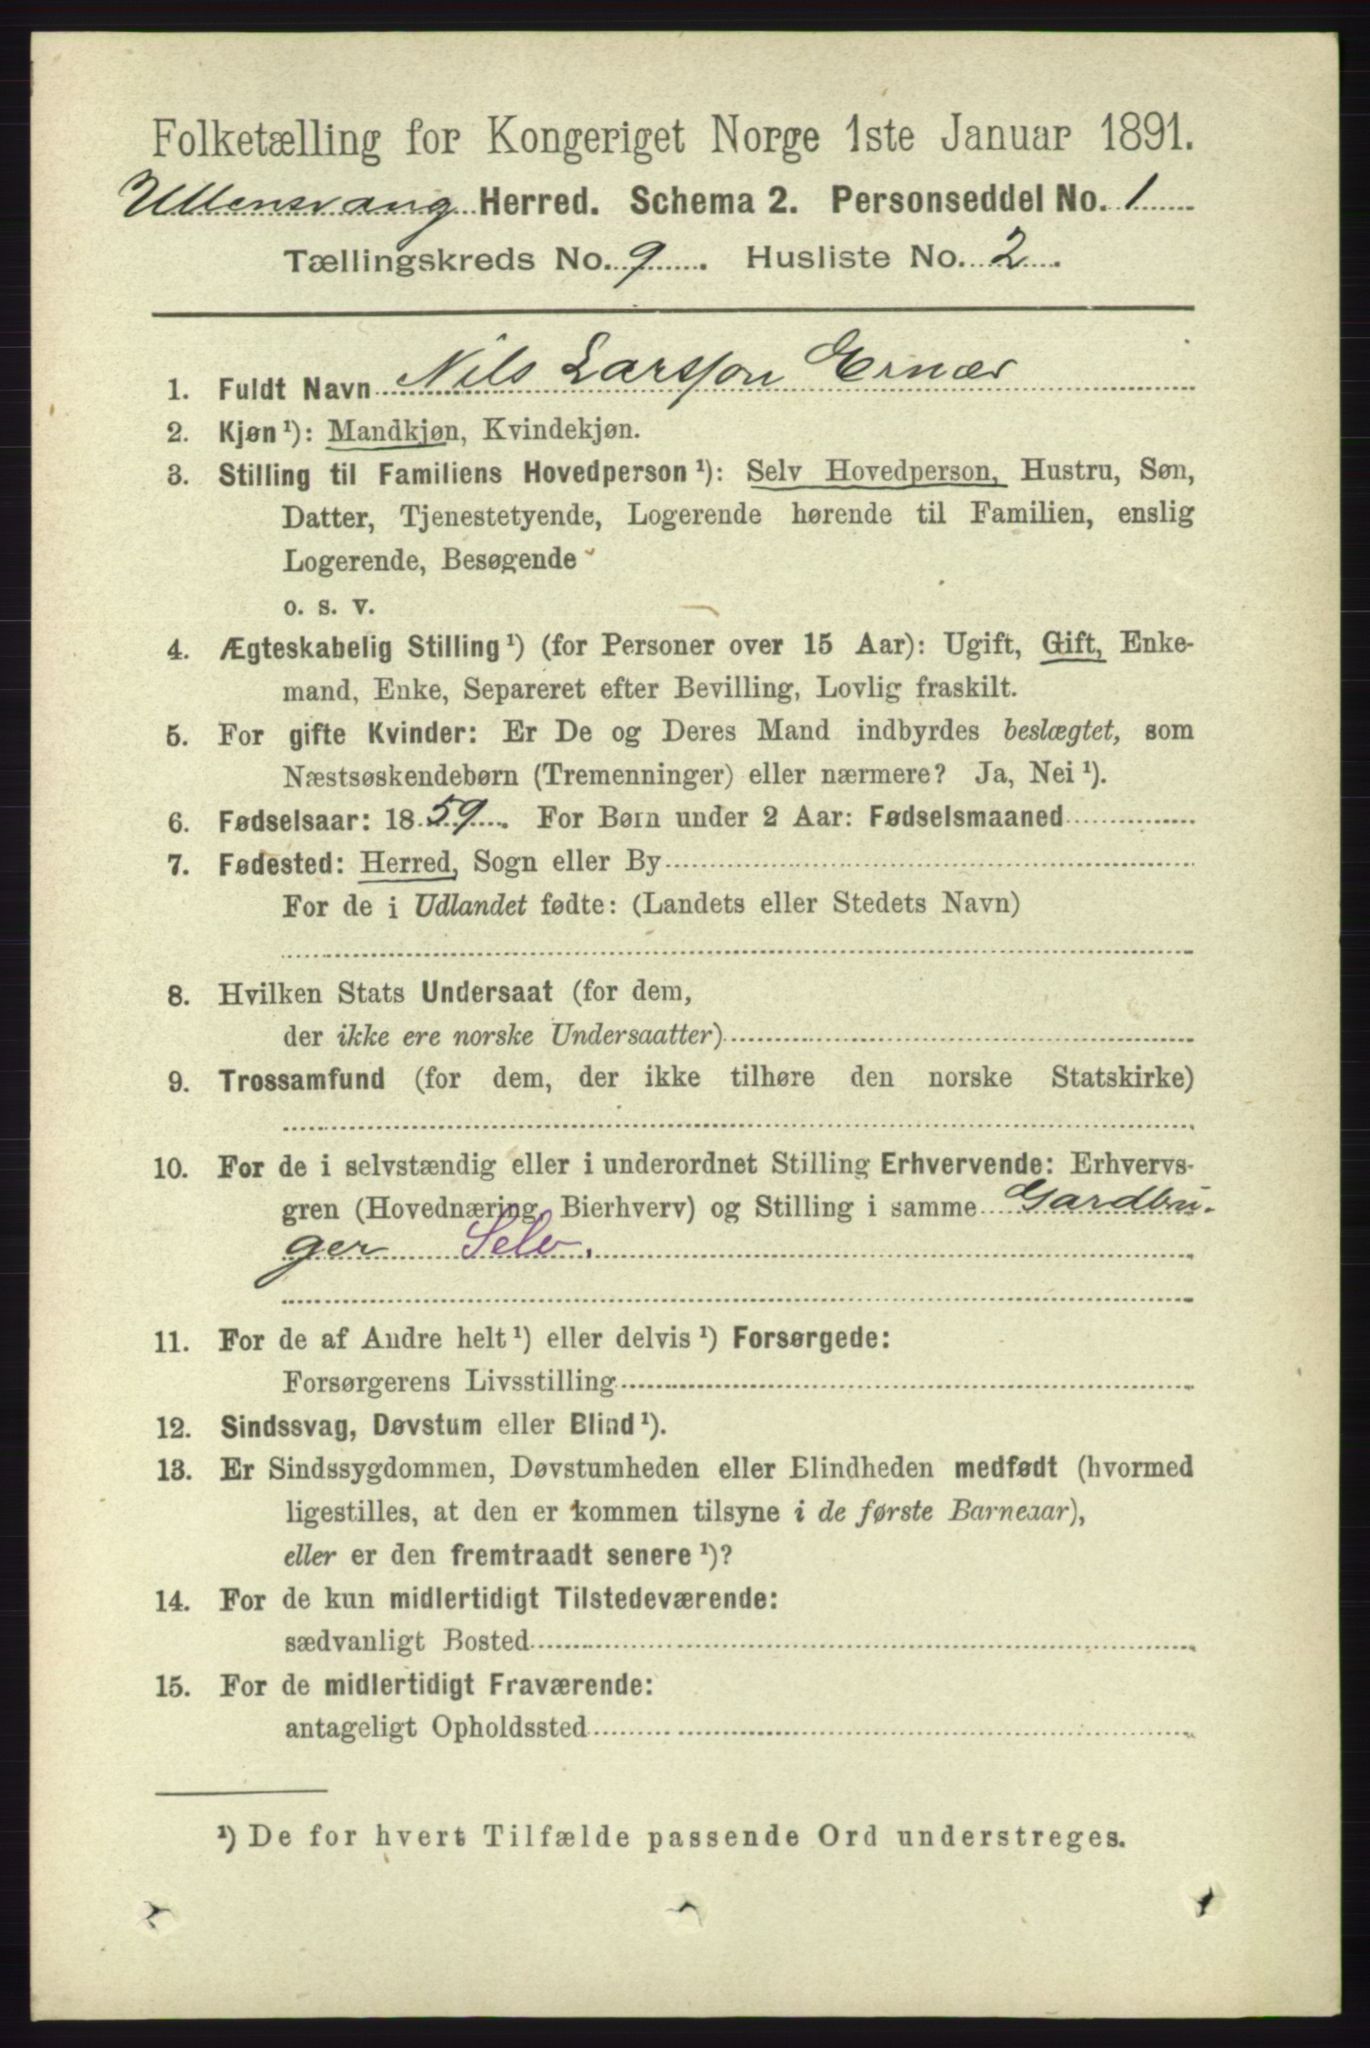 Folketælling for Kongeriget Norge 1ste Januar 1891.
Ullensvang Herred. Schema 2. Personseddel No. 1
Tællingskreds No. 9. Husliste No. 2.
1. Fuldt Navn Nils Larsson Ernæs
2. Kjøn¹): Mandkjøn, Kvindekjøn.
3. Stilling til Familiens Hovedperson¹): Selv Hovedperson, Hustru, Søn,
Datter, Tjenestetyende, Logerende hørende til Familien, enslig
Logerende, Besøgende
o. s. v.
4. Ægteskabelig Stilling¹) (for Personer over 15 Aar): Ugift, Gift, Enke-
mand, Enke, Separeret efter Bevilling, Lovlig fraskilt.
5. For gifte Kvinder: Er De og Deres Mand indbyrdes beslægtet, som
Næstsøskendebørn (Tremenninger) eller nærmere? Ja, Nei¹).
6. Fødselsaar: 1859. For Børn under 2 Aar: Fødselsmaaned
7. Fødested: Herred, Sogn eller By
For de i Udlandet fødte: (Landets eller Stedets Navn)
8. Hvilken Stats Undersaat (for dem,
der ikke ere norske Undersaatter)
9. Trossamfund (for dem, der ikke tilhøre den norske Statskirke)
10. For de i selvstændig eller i underordnet Stilling Erhvervende: Erhvervs-
gren (Hovednæring, Bierhverv) og Stilling i samme Gardbru-
ger Selv.
11. For de af Andre helt¹) eller delvis¹) Forsørgede:
Forsørgerens Livsstilling
12. Sindssvag, Døvstum eller Blind¹).
13. Er Sindssygdommen, Døvstumheden eller Blindheden medfødt (hvormed
ligestilles, at den er kommen tilsyne i de første Barneaar),
eller er den fremtraadt senere¹)?
14. For de kun midlertidigt Tilstedeværende:
sædvanligt Bosted
15. For de midlertidigt Fraværende:
antageligt Opholdssted
¹) De for hvert Tilfælde passende Ord understreges.